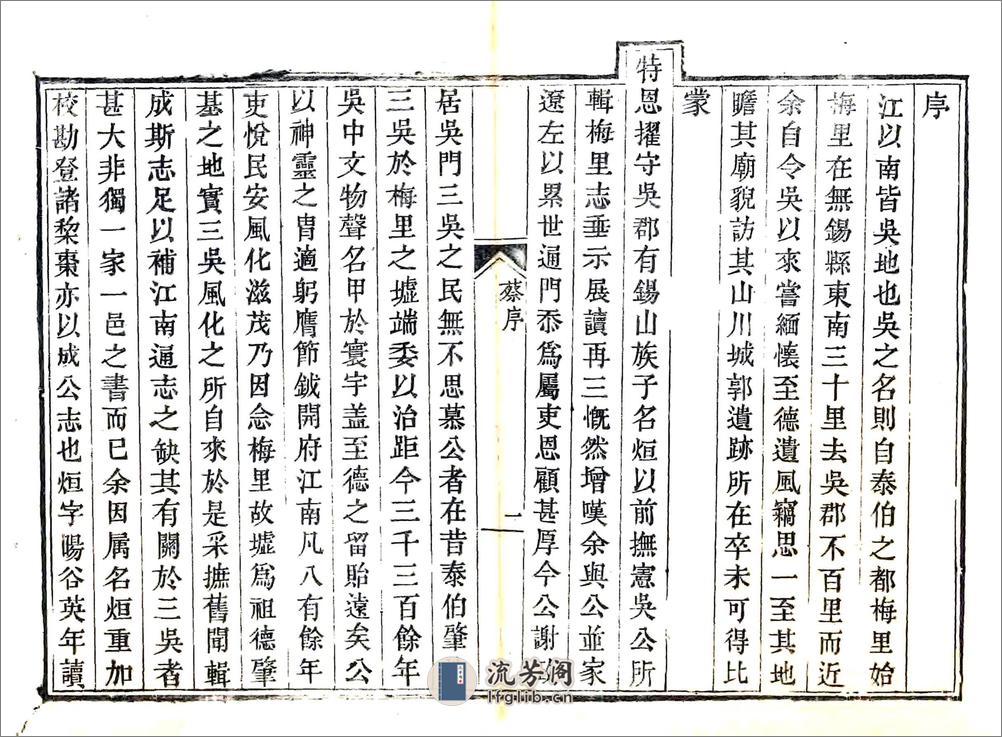 序
江以南皆吳地也吳之名則自泰伯之都梅里始
梅里在無錫縣東南三十里去吳郡不百里而近
余自令吳以來嘗緬懷至德遺風竊思一至其地
瞻其廟貌訪其山川城郭遺跡所在卒未可得比
蒙
特恩擢守吳郡有錫山族子名烜以前撫憲吳公所
輯梅里志垂示展讀再三慨然增嘆余與公並家
遼左以累世通門忝爲屬吏恩顧甚厚今公謝
蔡序
一
居吳門三吳之民無不思慕公者在昔泰伯肇
三吳於梅里之墟端委以治距今三千三百餘年
吳中文物聲名甲於寰宇盖至德之留貽遠矣公
以神靈之胄適躬膺節鉞開府江南凡八有餘年
吏悅民安風化滋茂乃因念梅里故墟爲祖德肇
基之地實三吳風化之所自來於是采摭舊聞輯
成斯志足以補江南通志之缺其有關於三吳者
甚大非獨一家一邑之書而已余因属名烜重加
校勘登諸棃棗亦以成公志也烜字暘谷英年讀
流芳阁
lfglib.cn